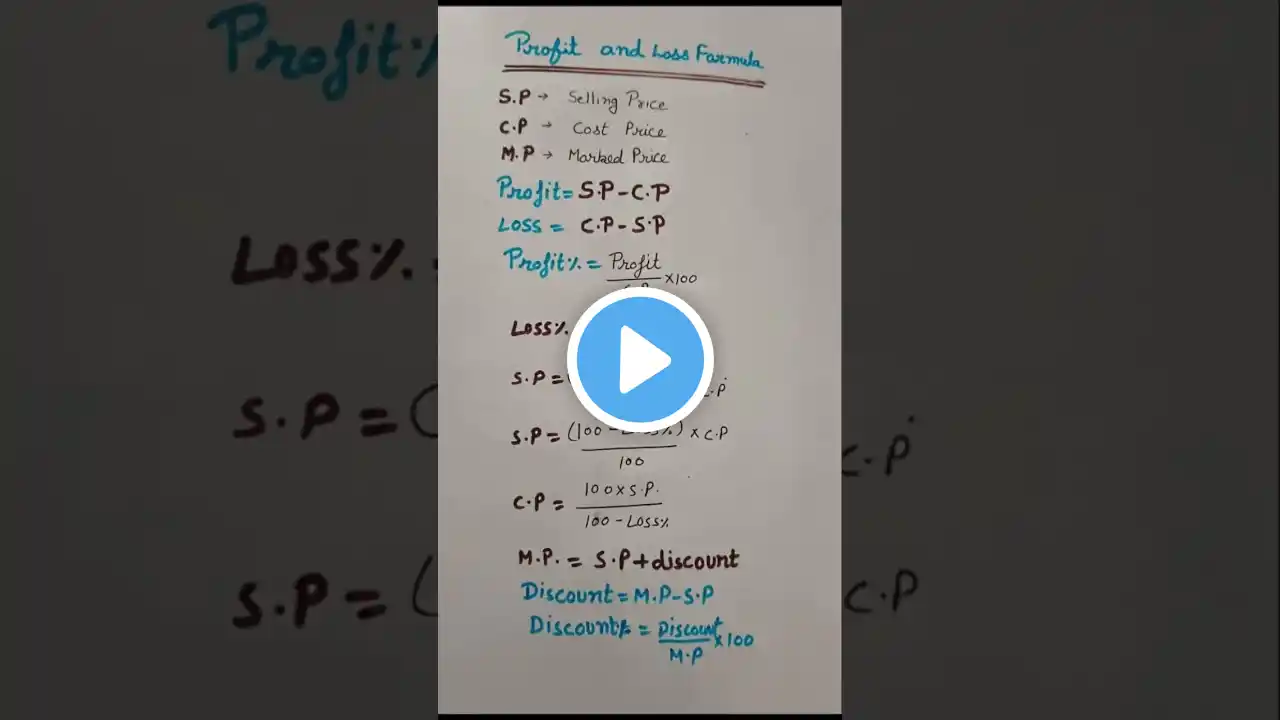 Profit and Loss Farmula
S.P → Selling Price
C.P → Cost Price
M.P → Marked Price
Profit = S.P - C.P
Loss = C.P - S.P
Profit% = Profit
×100
Loss%.
S.P =
C.P
S.P = (100 - Loss%) × C.P
100
C.P = 100 × S.P.
100 - Loss%
M.P. = S.P + discount
Discount = M.P - S.P
Discount% = Discount × 100
M.P
Profit%
Loss%.
S.P = (
C.P
S.P = (
C.P